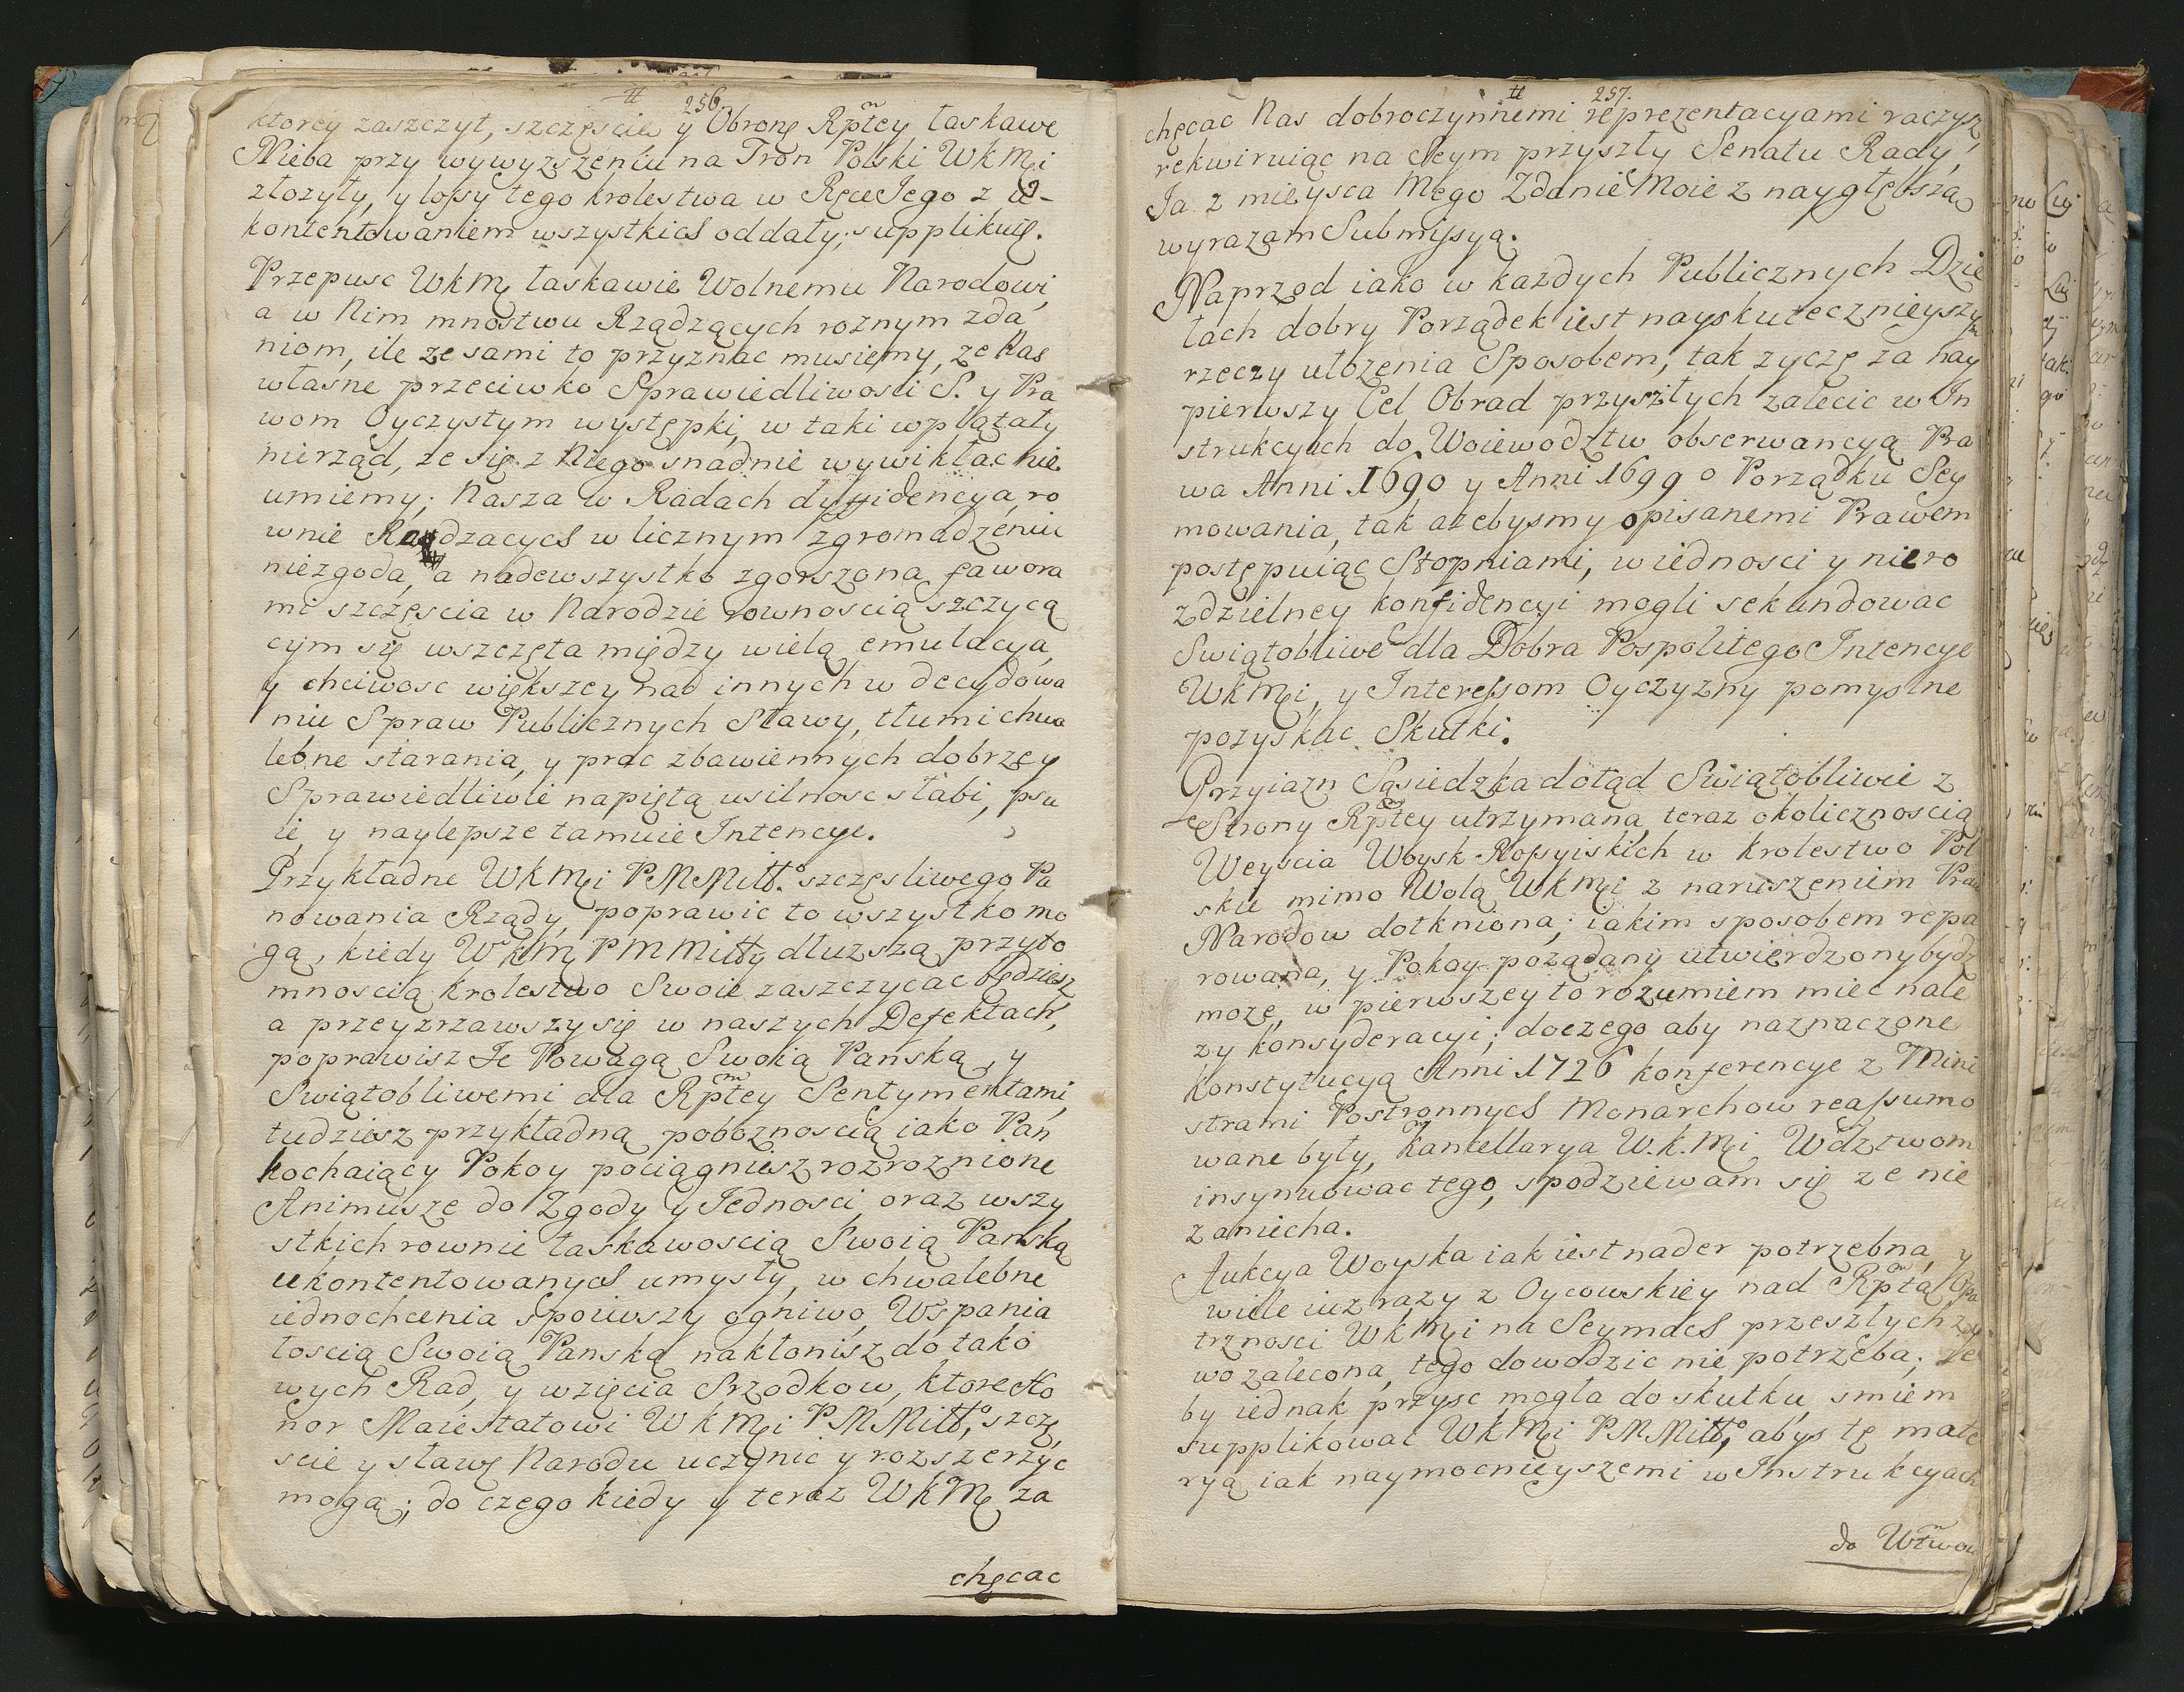 256.
ktorey zaszczyt, szczęscie y Obronę Rptey łaskawe
Nieba przy wywyzszeniu na Tron Polski WKMi
złozyły, y lossy tego krolestwa w Ręce Jego z u-
kontentowaniem wszystkich oddały; supplikuię.
Przepusc WKMę łaskawie Wolnemu Narodowi,
a w Nim mnostwu Rządzących roznym zda
niom, ile ze sami to przyznac musiemy, ze Nas
własne przeciwko Sprawiedliwosci S. y Pra
wom Oyczystym występki, w taki wplątały
nierząd, ze się z Niego snadnie wywikłac nie
umiemy; Nasza w Radach dyffidencya, ro
wnie Radzacych w licznym zgromadzeniu
niezgoda, a nadewszystko zgorszona fawora
mi szczęscia w Narodzie rownoscią szczycą
cym się wszczęta między wielą emulacya,
y chciwosc większey nad innych w decydowa
niu Spraw Publicznych Sławy, tłumi chwa
lebne starania, y prac zbawiennych dobrze y
Sprawiedliwie napiętą usilnosc słabi, psu
ie, y naylepsze tamuie Intencye.
Przykładne WKMi PMMiłło szczęsliwego Pa
nowania Rządy, poprawic to wszystko mo
gą, kiedy WKMę PMMiłły dłuzszą przyto
mnoscią Krolestwo Swoie zaszczycac będziesz
a przeyzrzawszy się w naszych Defektach,
poprawisz Je Powagą Swoią Panską, y
Swiątobliwemi dla Rptey Sentymentami,
tudziesz przykładną poboznoscią iako Pan
kochaiący Pokoy pociągniesz rozroznione
Animusze do Zgody y Jednosci, oraz wszy
stkich rownie łaskawoscią Swoią Panską
ukontentowanych umysły, w chwalebne
iednochcenia spoiwszy ogniwo, Wspania
łoscią Swoią Panską nakłonisz do tako
wych Rad, y wzięcia Srzodkow, ktore Ho
nor Maiestatowi WKMi PMMiłło, szczę
scie y sławę Narodu uczynic y rozszerzyc
mogą; do czego kiedy y teraz WKMę za
chęcac
257.
chęcac Nas dobroczynnemi reprezentacyami raczysz,
rekwiruiąc na Seym przyszły Senatu Rady,
Ja z mieysca Mego Zdanie Moie z naygłębszą
wyrazam Submissyą.
Naprzod iako w kazdych Publicznych Dzie
łach dobry Porządek iest nayskutecznieyszym
rzeczy ułozenia Sposobem, tak zyczę za nay
pierwszy Cel Obrad przyszłych zalecic w In
strukcyach do Woiewodztw obserwancyą Pra
wa Anni 1690 y Anni 1699 o Porządku Sey
mowania, tak azebysmy opisanemi Prawem
postępuiąc Stopniami, w iednosci y niero
zdzielney konfidencyi mogli sekundowac
Swiątobliwe dla Dobra Pospolitego Intencye
WKMi, y Interessom Oyczyzny pomyslne
pozyskac Skutki.
Przyiazn Sąsiedzka dotąd Swiątobliwie z
Strony Rptey utrzymana, teraz okolicznoscią
Weyscia Woysk Rossyiskich w Krolestwo Pol
skie mimo Wolą WKMi z naruszeniem Praw
Narodow dotkniona; iakim sposobem repa
rowana, y Pokoy pozadany utwierdzony bydz
moze, w pierwszey to rozumiem miec nale
zy konsyderacyi; doczego aby naznaczone
Konstytucyą Anni 1726 konferencye z Mini
strami Postronnych Monarchow reassumo
wane były, Kancellarya W.K.Mi Wdztwom
insynuowac tego, spodziewam się ze nie
zaniecha.
Aukcya Woyska iak iest nader potrzebna, y
wiele iuz razy z Oycowskiey nad Rptą Opa
trznosci WKMi na Seymach przeszłych zy
wo zalecona, tego dowodzic nie potrzeba; Ze
by iednak przysc mogła do skutku, smiem
supplikowac WKMi PMMiłło, abys tę mate
ryą iak naymocnieyszemi w Instrukcyach
do Wtwow